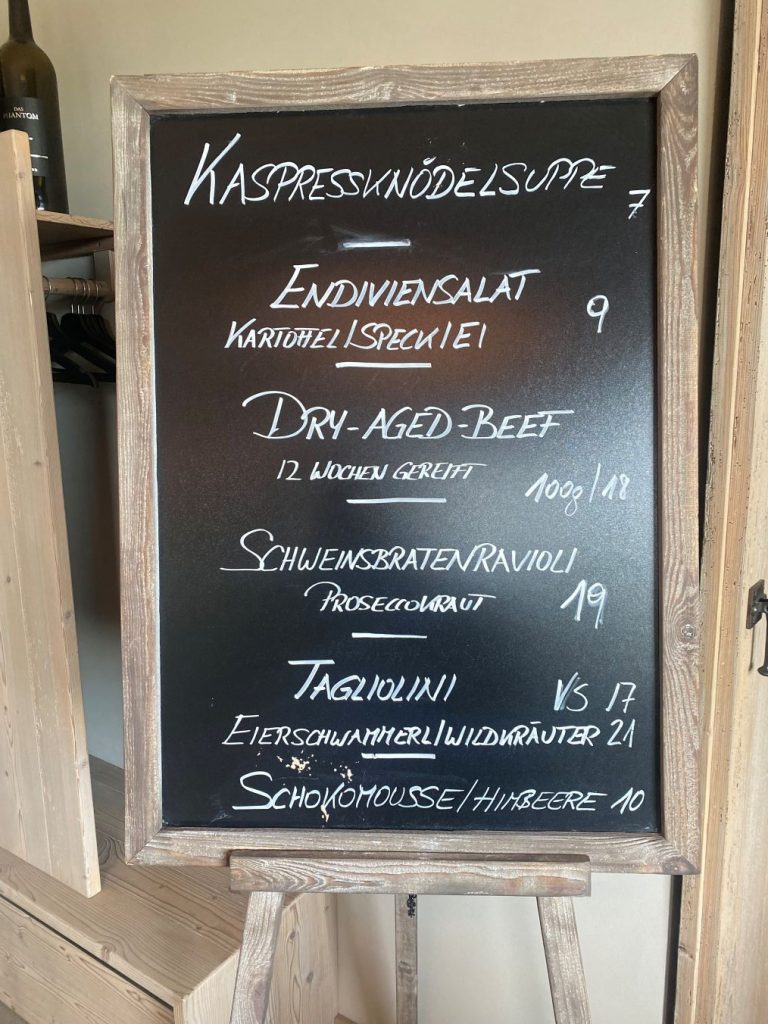 DAS
PHANTOM
KASPRESSKNÖDELSUPPE 7
ENDIVIENSALAT 9
KARTOFFEL/SPECK/EI
DRY-AGED-BEEF
12 WOCHEN GEREIFT 100g/18
SCHWEINSBRATENRAVIOLI
PROSECCOKRAUT 19
TAGLIOLINI VS 17
EIERSCHWAMMERL/WILDKRÄUTER 21
SCHOKOMOUSSE/HIMBEERE 10